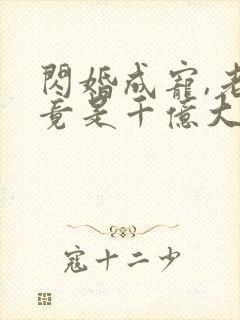 閃婚成寵,老
竟是千億大
寇十二少